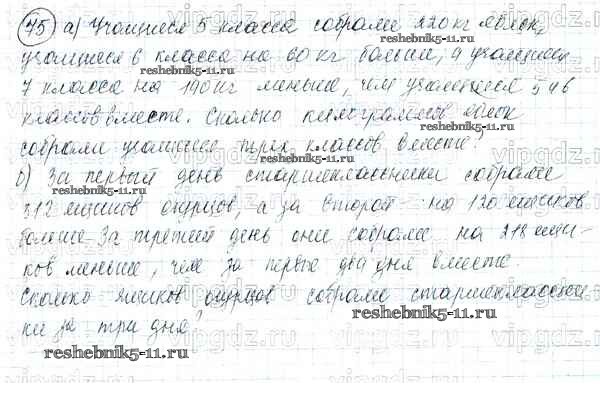 75 а) Учащиеся 5 класса собрали 220 кг яблок,
учащиеся 6 класса на 60 кг больше, а учащиеся
reshebnik5-11.ru
7 класса на 190 кг меньше, чем учащиеся 5 и 6
классов вместе. Сколько килограммов яблок
reshebnik5-11.ru
собрали учащиеся трех классов вместе?
б) За первый день старшеклассники собрали
reshebnik5-11.ru
312 ящиков огурцов, а за второй - на 120 ящиков
больше. За третий день они собрали на 218 ящи-
ков меньше, чем за первые два дня вместе
reshebnik5-11.ru
Сколько ящиков огурцов собрали старшеклассни
ки за три дня?
reshebnik5-11.ru
vipgdz.ru